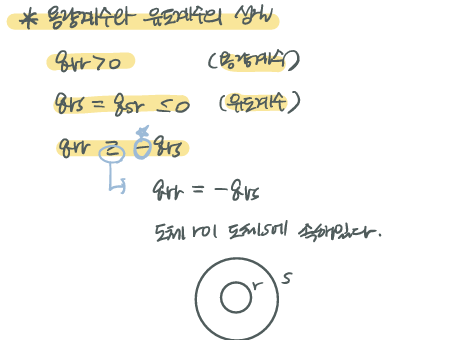 * 용량계수와 유도계수의 성질
qrr > 0 (용량계수)
qrs = qsr ≤ 0 (유도계수)
qrr ≥ -qrs
qrr = -qrs
도체 r이 도체 s에 속해있다.
r s